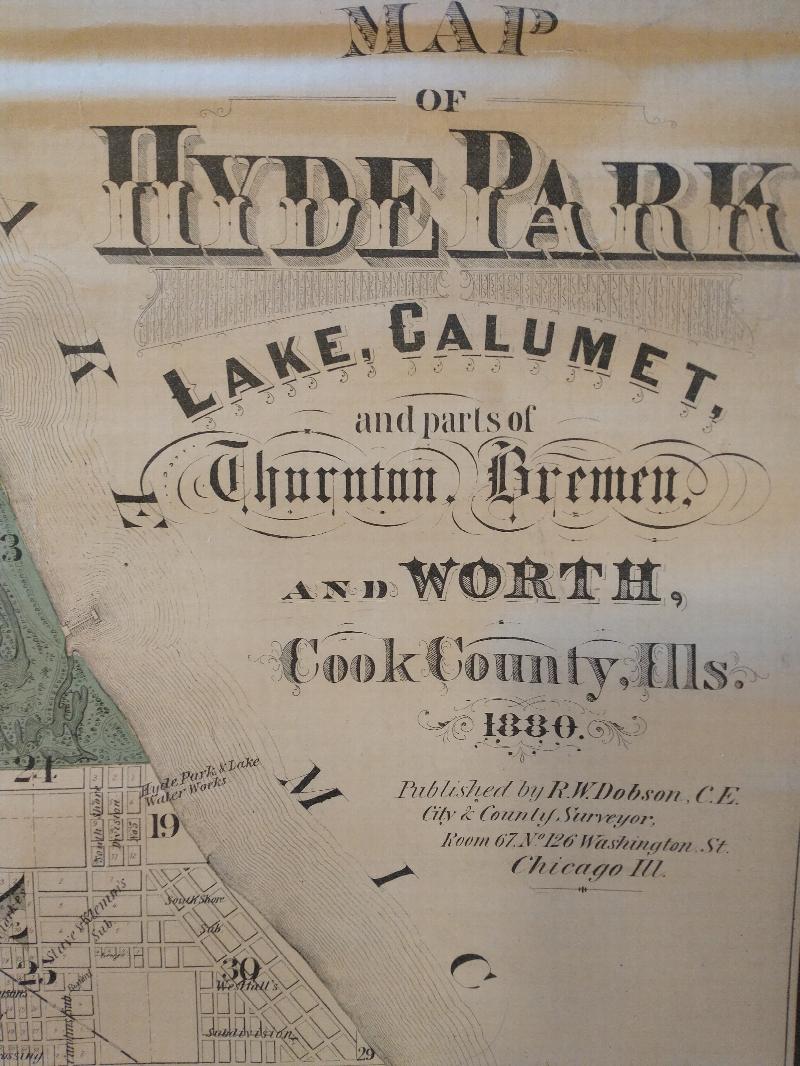 MAP
OF
HYDE PARK
LAKE, CALUMET,
and parts of
Thornton, Bremen,
AND WORTH,
Cook County, Ills.
1880.
Published by R.W. Dobson, C.E.
City & County Surveyor,
Room 67. No 126 Washington St.
Chicago Ill.
K
E
M
I
C
24
Hyde Park & Lake
Water Works
19
South Shore
Division
South Shore
Sub
Sub
25
30
Subdivision
29